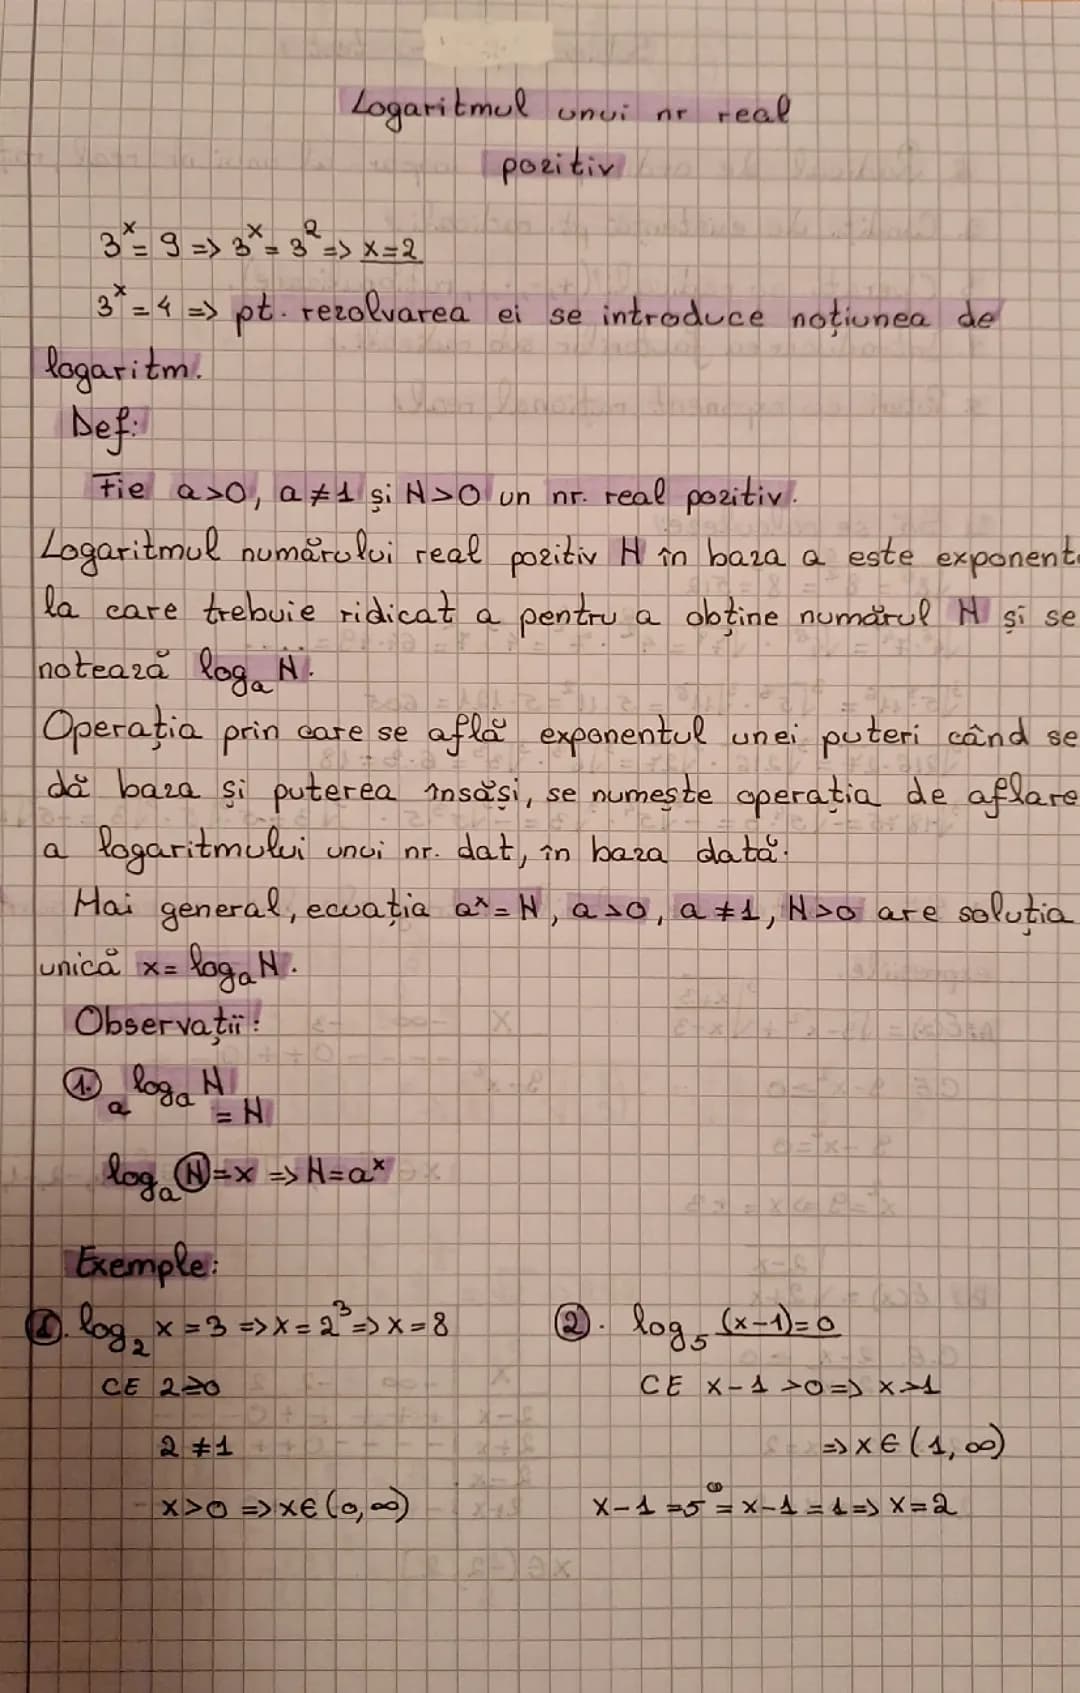 Logaritmul unui nr real
pozitiv
3ˣ = 9 => 3ˣ = 3² => x=2
3ˣ = 4 => pt. rezolvarea ei se introduce noțiunea de
logaritm.
Def:
Fie a>0, a≠1 și N>0 un nr. real pozitiv.
Logaritmul numărului real pozitiv N în baza a este exponent
la care trebuie ridicat a pentru a obține numărul N și se
notează logₐ N.
Operația prin care se află exponentul unei puteri când se
dă baza și puterea însăși, se numește operația de aflare
a logaritmului unui nr. dat, în baza dată.
Mai general, ecuația aˣ = N, a>0, a≠1, N>0 are soluția
unică x = logₐ N.
Observații:
1. a^(logₐ N) = N
logₐ N = x => N = aˣ
Exemple:
1. log₂ x = 3 => x = 2³ => x = 8
CE 2>0
2≠1
x>0 => x∈(0,∞)
2. log₅ (x-1)=0
CE x-1 >0 => x>1
=> x∈(1,∞)
x-1 = 5⁰ = x-1 = 1 => x=2